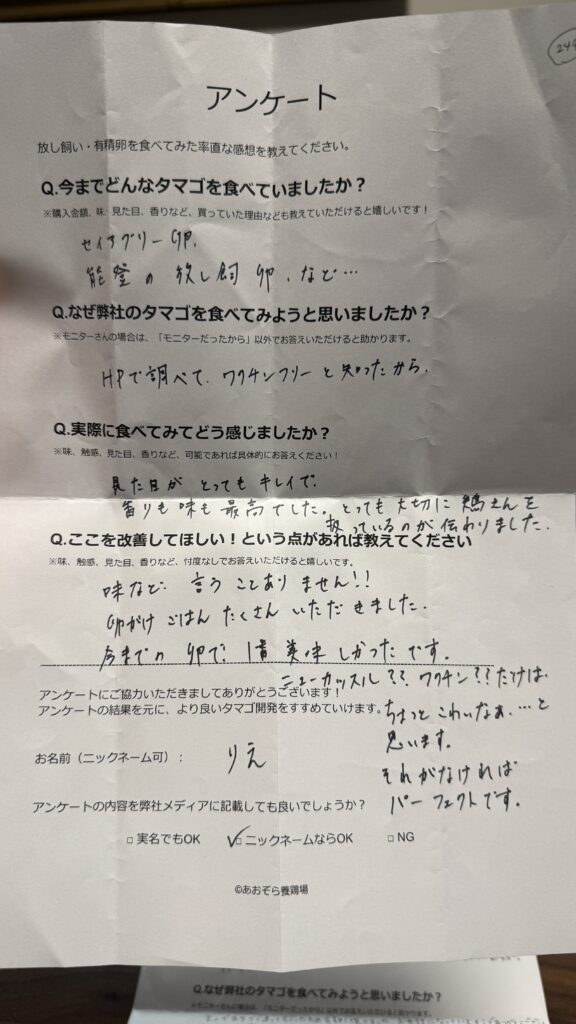 アンケート
放し飼い・有精卵を食べてみた率直な感想を教えてください。
Q.今までどんなタマゴを食べていましたか？
※購入金額、味、見た目、香りなど、買っていた理由なども教えていただけると嬉しいです！
セイアグリー卵、
能登の放し飼卵、など…
Q.なぜ弊社のタマゴを食べてみようと思いましたか？
※モニターさんの場合は、「モニターだったから」以外でお答えいただけると助かります。
HPで調べて、ワクチンフリーと知ったから、
Q.実際に食べてみてどう感じましたか？
※味、触感、見た目、香りなど、可能であれば具体的にお答えください！
見た目がとってもキレイで、
香りも味も最高でした。とっても大切に鶏さんを
扱っているのが伝わりました。
Q.ここを改善してほしい！という点があれば教えてください
※味、触感、見た目、香りなど、忖度なしでお答えいただけると嬉しいです。
味など、言うことありません!!
卵がけごはんたくさんいただきました。
今までの卵で、1番美味しかったです。
ニューカッスル?? ワクチン??だけは、
ちょっとこわいなぁ…と
思います。
それがなければ
パーフェクトです。
アンケートにご協力いただきましてありがとうございます！
アンケートの結果を元に、より良いタマゴ開発をすすめていけます。
お名前（ニックネーム可）：りえ
アンケートの内容を弊社メディアに記載しても良いでしょうか？
□ 実名でもOK ☑ ニックネームならOK □ NG
©あおぞら養鶏場
Q.なぜ弊社のタマゴを食べてみようと思いましたか？
※モニターさんの場合は、「モニターだったから」以外でお答えいただけると助かります。